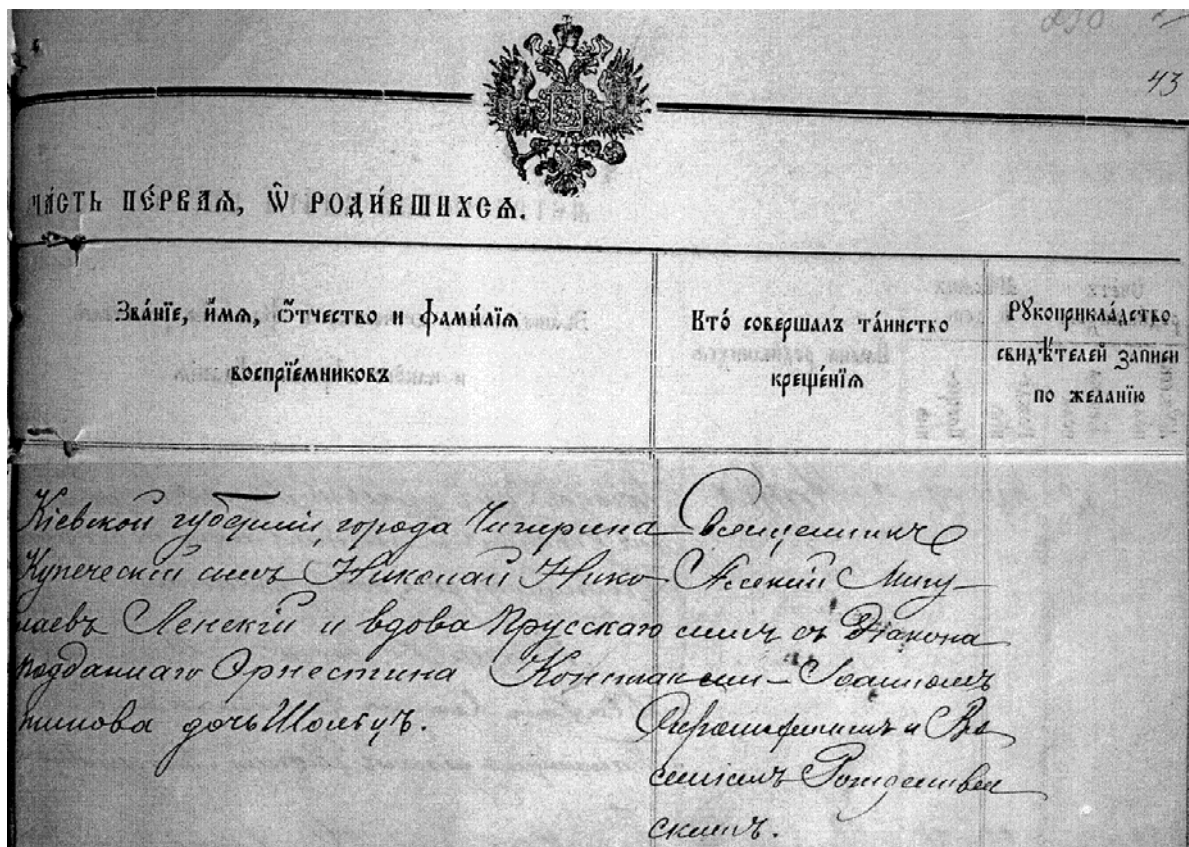 43
ЧА́СТЬ ПЕ́РВАѦ, Ѡ҆ РОДИ́ВШИХСѦ.
Зва́нїе, и҆́мѧ, ѻ҆́тчество и фами́лїѧ
воспрїе́мниковъ
Кто́ совершалъ та́инство
креще́нїѧ
Рꙋкоприкла́дство
свидѣ́телей записи
по желанїю
Кіевской губерніи, города Чигирина
Купеческій сынъ Николай Нико-
лаевъ Ленскій и вдова Прусскаго
подданнаго Эрнестина Констан-
тинова дочь Шольцъ.
Священникъ
съ Діакона
ми Іоанномъ
и Ва
силіемъ Рождествен
скимъ.